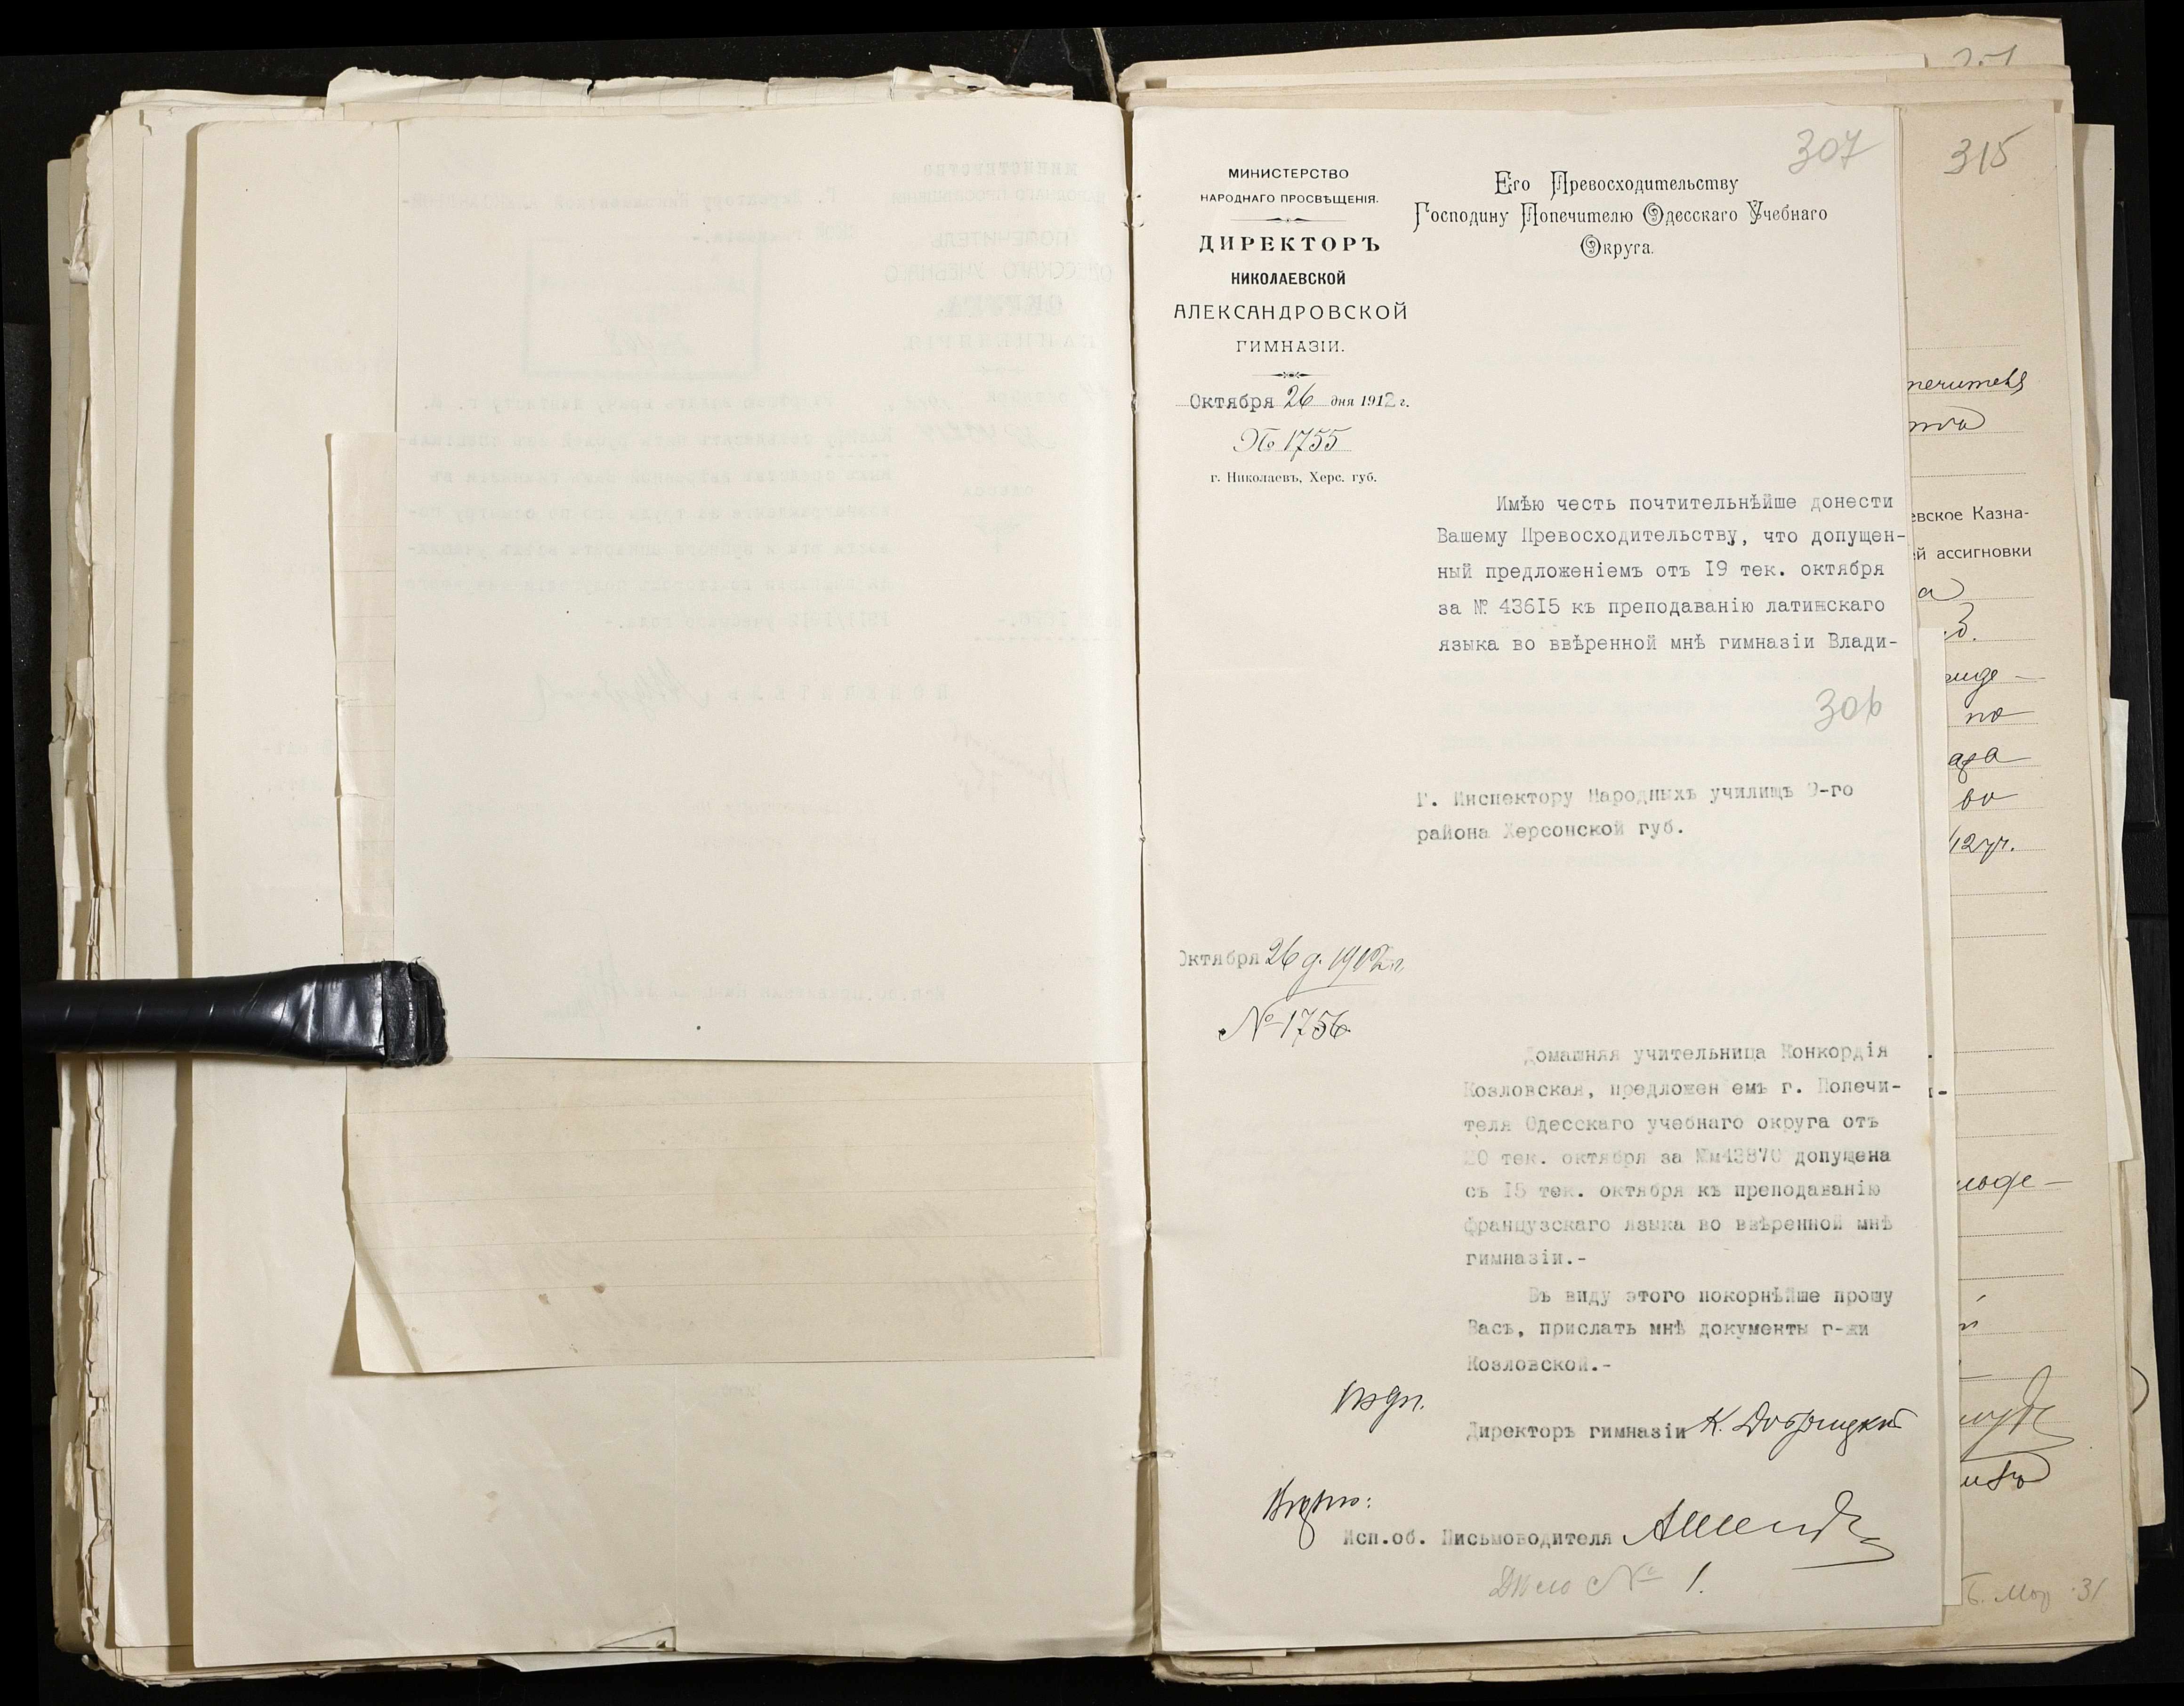 307
МИНИСТЕРСТВО
НАРОДНАГО ПРОСВѢЩЕНІЯ.
ДИРЕКТОРЪ
НИКОЛАЕВСКОЙ
АЛЕКСАНДРОВСКОЙ
ГИМНАЗІИ.
Октября 26 дня 1912 г.
№ 1755
г. Николаевъ, Херс. губ.
Его Превосходительству
Господину Попечителю Одесскаго Учебнаго
Округа.
Имѣю честь почтительнѣйше донести
Вашему Превосходительству, что допущен-
ный предложеніемъ отъ 19 тек. октября
за № 43615 къ преподаванію латинскаго
языка во ввѣренной мнѣ гимназіи Влади-
306
Г. Инспектору Народныхъ училищъ 9-го
района Херсонской губ.
Октября 26 д. 1912 г.
№ 1756
Домашняя учительница Конкордія
Козловская, предложен емъ г. Попечи-
теля Одесскаго учебнаго округа отъ
20 тек. октября за №43870 допущена
съ 15 тек. октября къ преподаванію
французскаго языка во ввѣренной мнѣ
гимназіи.-
Въ виду этого покорнѣйше прошу
Васъ, прислать мнѣ документы г-жи
Козловской.-
подп.
Директоръ гимназіи К. Добрицкій
Вѣрно:
Исп.об. Письмоводителя
Дѣло № 1.
315
251
евское Казна-
ей ассигновки
по
во